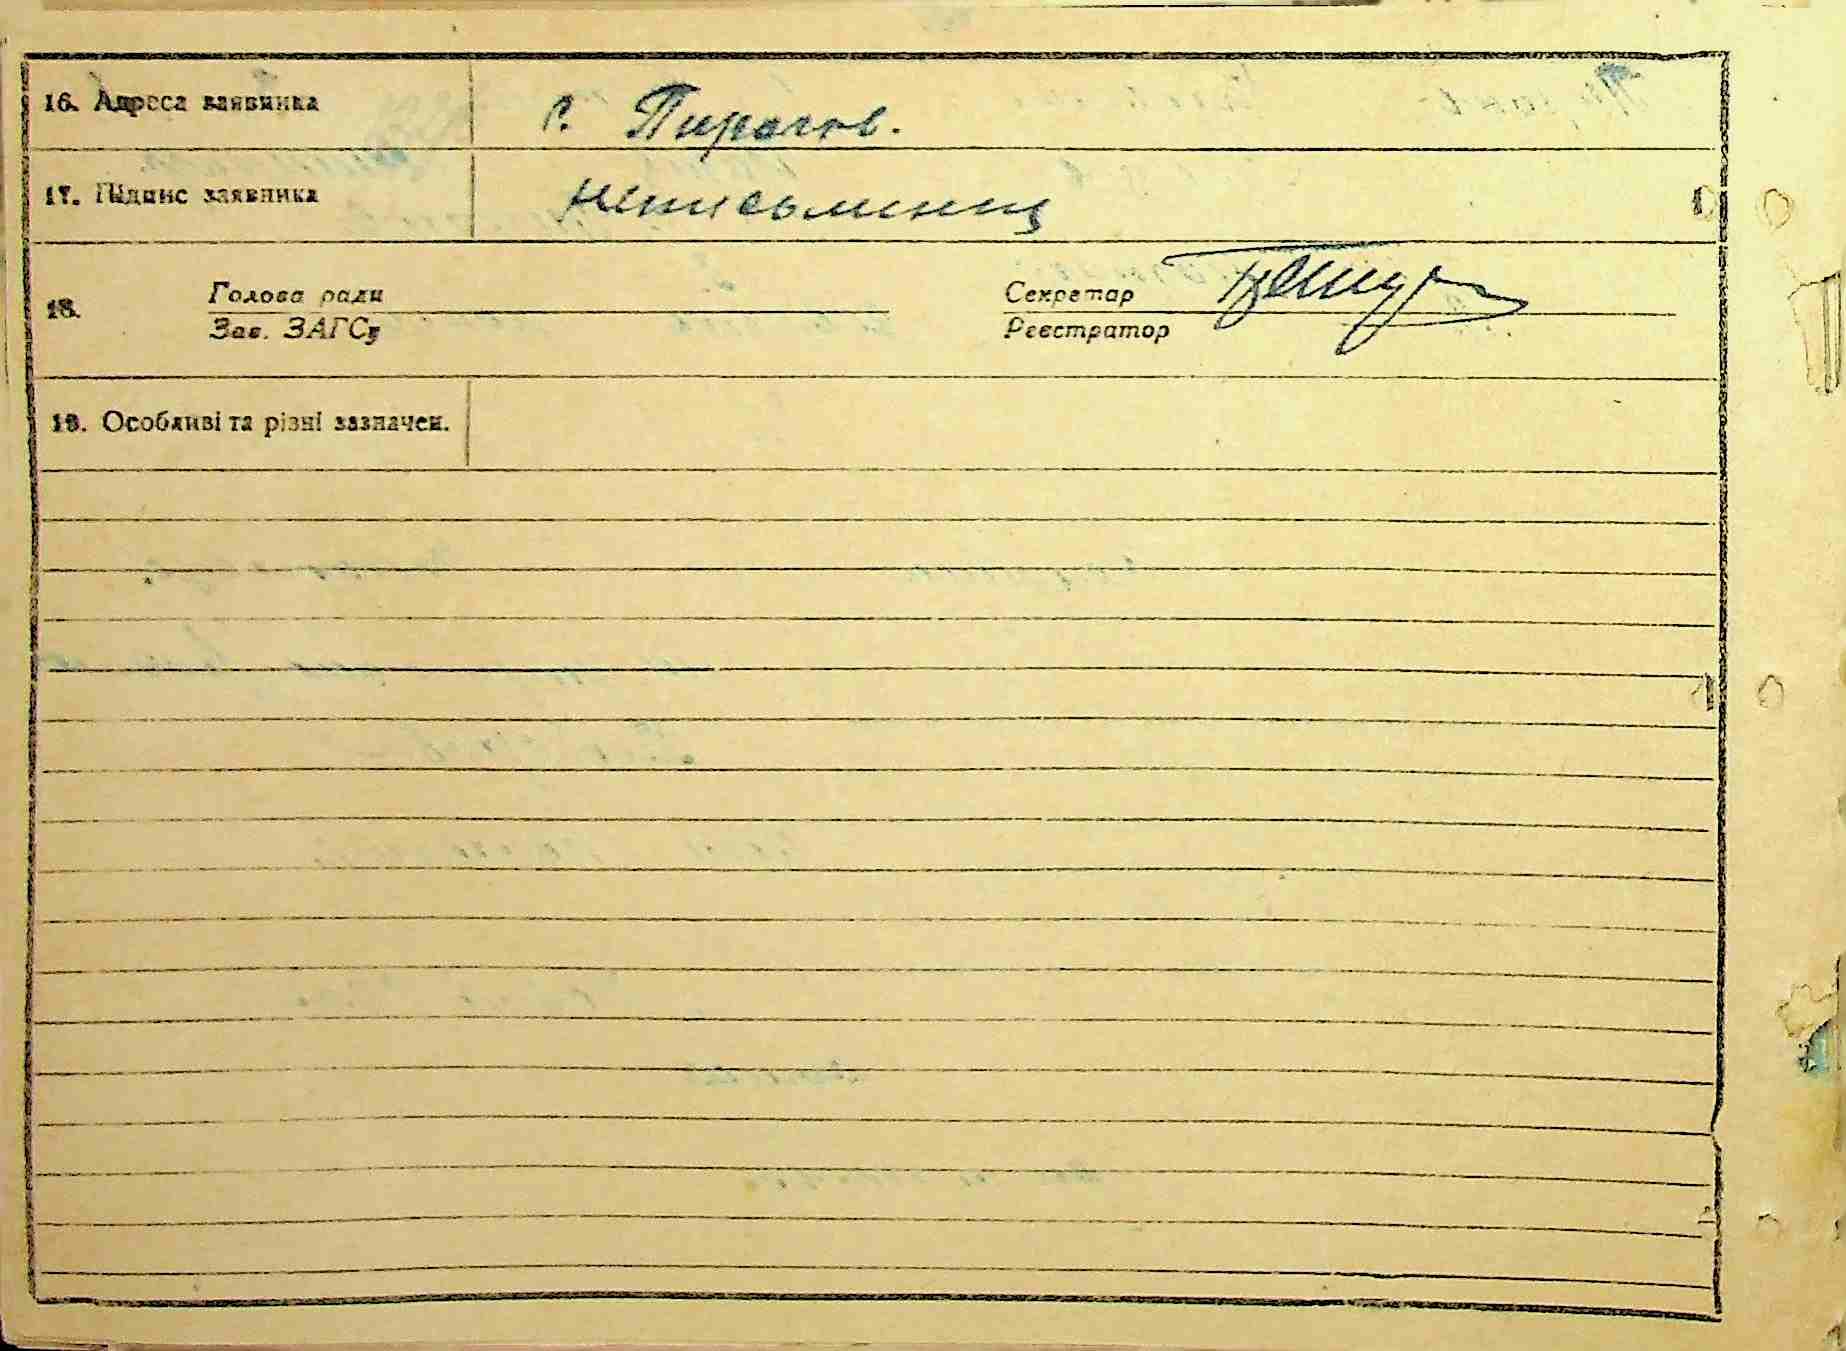 16. Адреса заявника с. Пирогов.
17. Підпис заявника неписьменний
18. Голова ради Секретар
Зав. ЗАГСу Реєстратор
19. Особливі та різні зазначен.